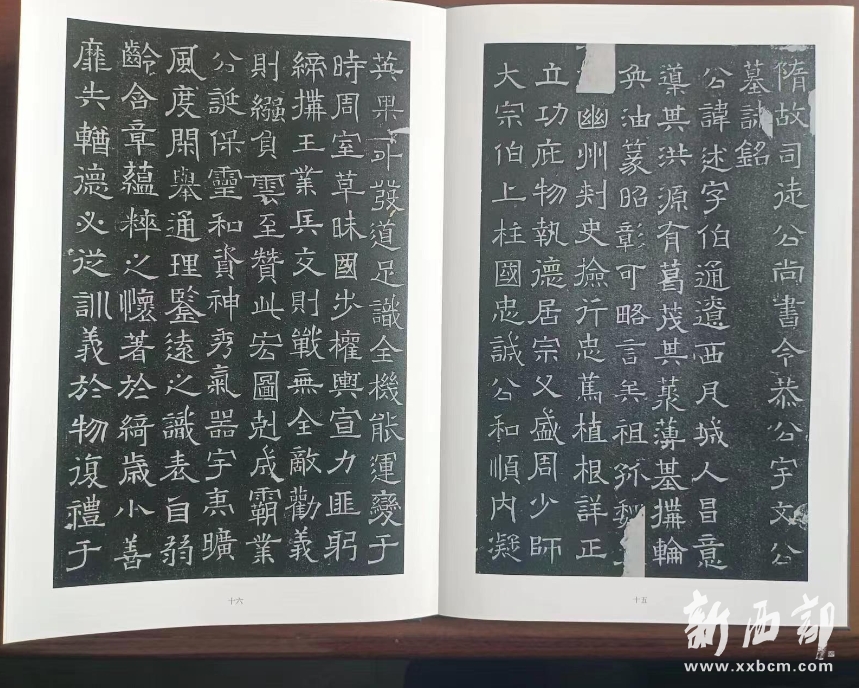 隋故司徒公尚書令恭公宇文公
墓誌銘
公諱述字伯通遼西凡城人昌意
導其洪源有葛茂其蒙薄基搆輪
奐油篆昭彰可略言矣祖孤魏
幽州刾史撿行忠篤植根詳正
立功庇物執德居宗父盛周少師
大宗伯上柱國忠誠公和順內凝
十五
英果外發道足識全機能運變于
時周室草昧國步權輿宣力匪躬
締搆王業兵交則戰無全敵勸義
則繈負雲至贊此宏圖剋成霸業
公誕保靈和資神秀氣器宇高曠
風度閑舉通理鑒遠之識表自弱
齡含章蘊粹之懷著於綺歲小善
靡失輶德必從訓義於物復禮于
十六
新西部
www.xxbcm.com